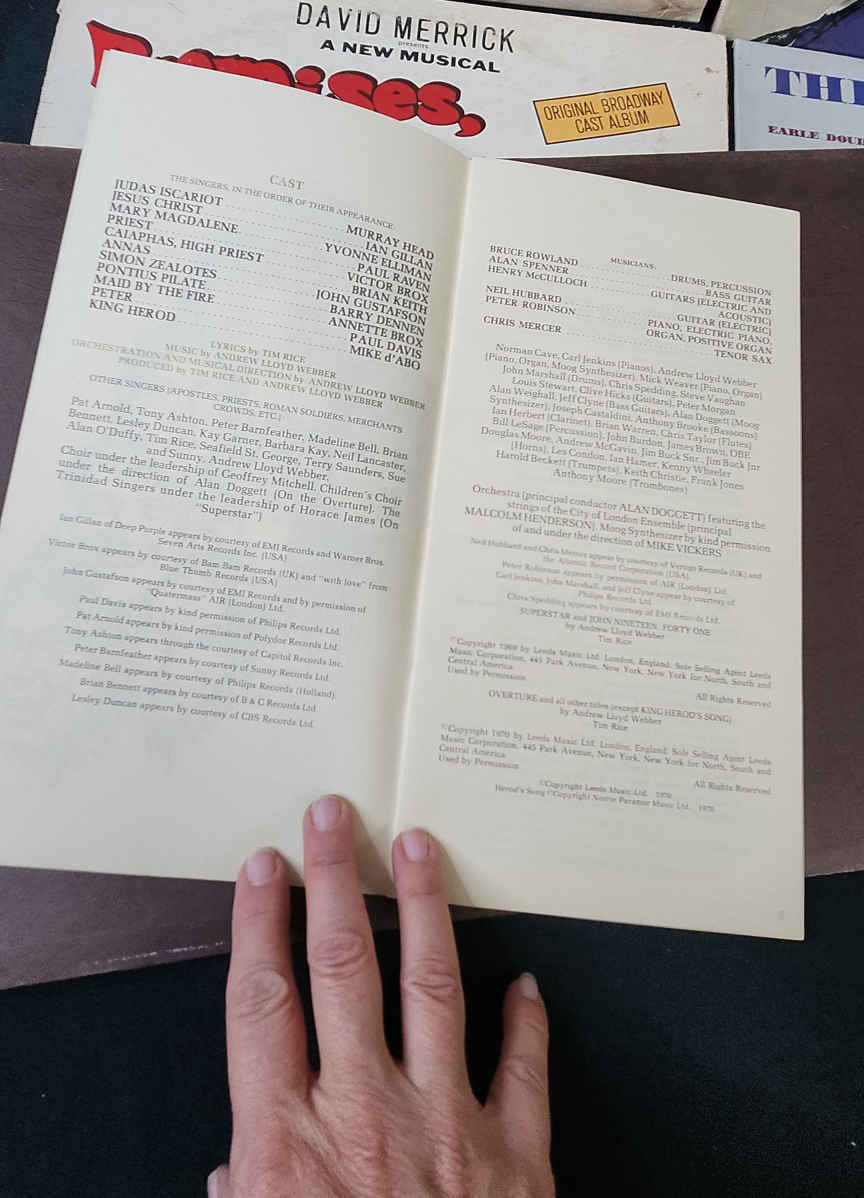 DAVID MERRICK
presents
A NEW MUSICAL
ORIGINAL BROADWAY
CAST ALBUM
EARLE
CAST
THE SINGERS, IN THE ORDER OF THEIR APPEARANCE:
JUDAS ISCARIOT MURRAY HEAD
JESUS CHRIST IAN GILLAN
MARY MAGDALENE YVONNE ELLIMAN
PRIEST PAUL RAVEN
CAIAPHAS, HIGH PRIEST VICTOR BROX
ANNAS BRIAN KEITH
SIMON ZEALOTES JOHN GUSTAFSON
PONTIUS PILATE BARRY DENNEN
MAID BY THE FIRE ANNETTE BROX
PETER PAUL DAVIS
KING HEROD MIKE d'ABO
LYRICS by TIM RICE
MUSIC by ANDREW LLOYD WEBBER
ORCHESTRATION AND MUSICAL DIRECTION by ANDREW LLOYD WEBBER
PRODUCED by TIM RICE AND ANDREW LLOYD WEBBER
OTHER SINGERS (APOSTLES, PRIESTS, ROMAN SOLDIERS, MERCHANTS
CROWDS, ETC.)
Pat Arnold, Tony Ashton, Peter Barnfeather, Madeline Bell, Brian
Bennett, Lesley Duncan, Kay Garner, Barbara Kay, Neil Lancaster,
Alan O'Duffy, Tim Rice, Seafield St. George, Terry Saunders, Sue
and Sunny, Andrew Lloyd Webber.
Choir under the leadership of Geoffrey Mitchell, Children's Choir
under the direction of Alan Doggett (On the Overture). The
Trinidad Singers under the leadership of Horace James (On
"Superstar")
Ian Gillan of Deep Purple appears by courtesy of EMI Records and Warner Bros.
Seven Arts Records Inc. (USA)
Victor Brox appears by courtesy of Bam Bam Records (UK) and "with love" from
Blue Thumb Records (USA)
John Gustafson appears by courtesy of EMI Records and by permission of
"Quatermass" AIR (London) Ltd.
Paul Davis appears by kind permission of Philips Records Ltd.
Pat Arnold appears by kind permission of Polydor Records Ltd.
Tony Ashton appears through the courtesy of Capitol Records Inc.
Peter Barnfeather appears by courtesy of Sunny Records Ltd.
Madeline Bell appears by courtesy of Philips Records (Holland)
Brian Bennett appears by courtesy of B & C Records Ltd.
Lesley Duncan appears by courtesy of CBS Records Ltd.
MUSICIANS:
BRUCE ROWLAND DRUMS, PERCUSSION
ALAN SPENNER BASS GUITAR
HENRY McCULLOCH GUITARS (ELECTRIC AND
ACOUSTIC)
NEIL HUBBARD GUITAR (ELECTRIC)
PETER ROBINSON PIANO, ELECTRIC PIANO,
ORGAN, POSITIVE ORGAN
CHRIS MERCER TENOR SAX
Norman Cave, Carl Jenkins (Pianos), Andrew Lloyd Webber
(Piano, Organ, Moog Synthesizer), Mick Weaver (Piano, Organ)
John Marshall (Drums), Chris Spedding, Steve Vaughan
Louis Stewart, Clive Hicks (Guitars), Peter Morgan
Alan Weighall, Jeff Clyne (Bass Guitars), Alan Doggett (Moog
Synthesizer), Joseph Castaldini, Anthony Brooke (Bassoons)
Ian Herbert (Clarinet), Brian Warren, Chris Taylor (Flutes)
Bill LeSage (Percussion), John Burdon, James Brown, OBE
Douglas Moore, Andrew McGavin, Jim Buck Snr., Jim Buck Jnr
(Horns), Les Condon, Ian Hamer, Kenny Wheeler
Harold Beckett (Trumpets), Keith Christie, Frank Jones
Anthony Moore (Trombones)
Orchestra (principal conductor ALAN DOGGETT) featuring the
strings of the City of London Ensemble (principal
MALCOLM HENDERSON). Moog Synthesizer by kind permission
of and under the direction of MIKE VICKERS
Neil Hubbard and Chris Mercer appear by courtesy of Vertigo Records (UK) and
the Atlantic Record Corporation (USA).
Peter Robinson appears by permission of AIR (London) Ltd.
Carl Jenkins, John Marshall, and Jeff Clyne appear by courtesy of
Philips Records Ltd.
Chris Spedding appears by courtesy of EMI Records Ltd.
SUPERSTAR and JOHN NINETEEN: FORTY ONE
by Andrew Lloyd Webber
Tim Rice
©Copyright 1969 by Leeds Music Ltd. London, England. Sole Selling Agent Leeds
Music Corporation, 445 Park Avenue, New York, New York for North, South and
Central America
Used by Permission All Rights Reserved
OVERTURE and all other titles (except KING HEROD'S SONG)
by Andrew Lloyd Webber
Tim Rice
©Copyright 1970 by Leeds Music Ltd. London, England. Sole Selling Agent Leeds
Music Corporation, 445 Park Avenue, New York, New York for North, South and
Central America
Used by Permission All Rights Reserved
©Copyright Leeds Music Ltd. 1970
Herod's Song ©Copyright Norrie Paramor Music Ltd. 1970